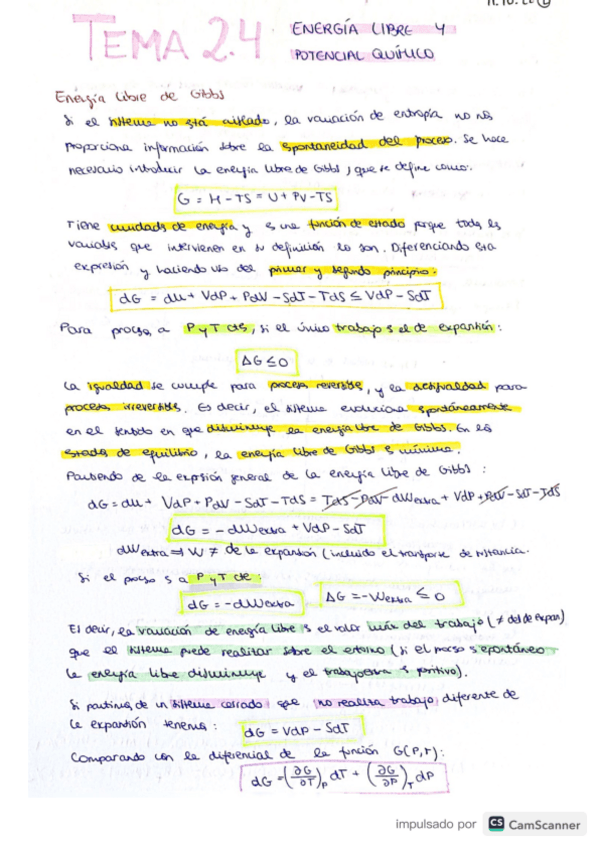 TEMA 2.4 ENERGÍA LIBRE Y
POTENCIAL QUÍMICO
Energía libre de Gibbs
Si el sistema no está aislado, la variación de entropía no nos
proporciona información sobre la espontaneidad del proceso. Se hace
necesario introducir la energía libre de Gibbs, que se define como:
G = H - TS = U + PV - TS
Tiene unidades de energía y es una función de estado porque todas las
variables que intervienen en su definición lo son. Diferenciando esta
expresión y haciendo uso del primer y segundo principio:
dG = dU + VdP + PdV - SdT - TdS ≤ VdP - SdT
Para procesos a P y T ctes, si el único trabajo es el de expansión:
ΔG ≤ 0
La igualdad se cumple para procesos reversibles, y la desigualdad para
procesos irreversibles. Es decir, el sistema evoluciona espontáneamente
en el sentido en que disminuye la energía libre de Gibbs. En los
estados de equilibrio, la energía libre de Gibbs es mínima.
Partiendo de la expresión general de la energía libre de Gibbs:
dG = dU + VdP + PdV - SdT - TdS = TdS - PdV - dWextra + VdP + PdV - SdT - TdS
dG = - dWextra + VdP - SdT
dWextra ⇒ W ≠ de la expansión (incluido el transporte de sustancia.
Si el proceso es a P y T cte:
dG = - dWextra ΔG = - Wextra ≤ 0
Es decir, la variación de energía libre es el valor máx del trabajo (≠ del de expan)
que el sistema puede realizar sobre el entorno (si el proceso es espontáneo
la energía libre disminuye y el trabajo extra es positivo).
Si partimos de un sistema cerrado que no realiza trabajo diferente de
la expansión tenemos: dG = VdP - SdT
Comparando con la diferencial de la función G(P,T):
dG = (∂G/∂T)P dT + (∂G/∂P)T dP
impulsado por CS CamScanner